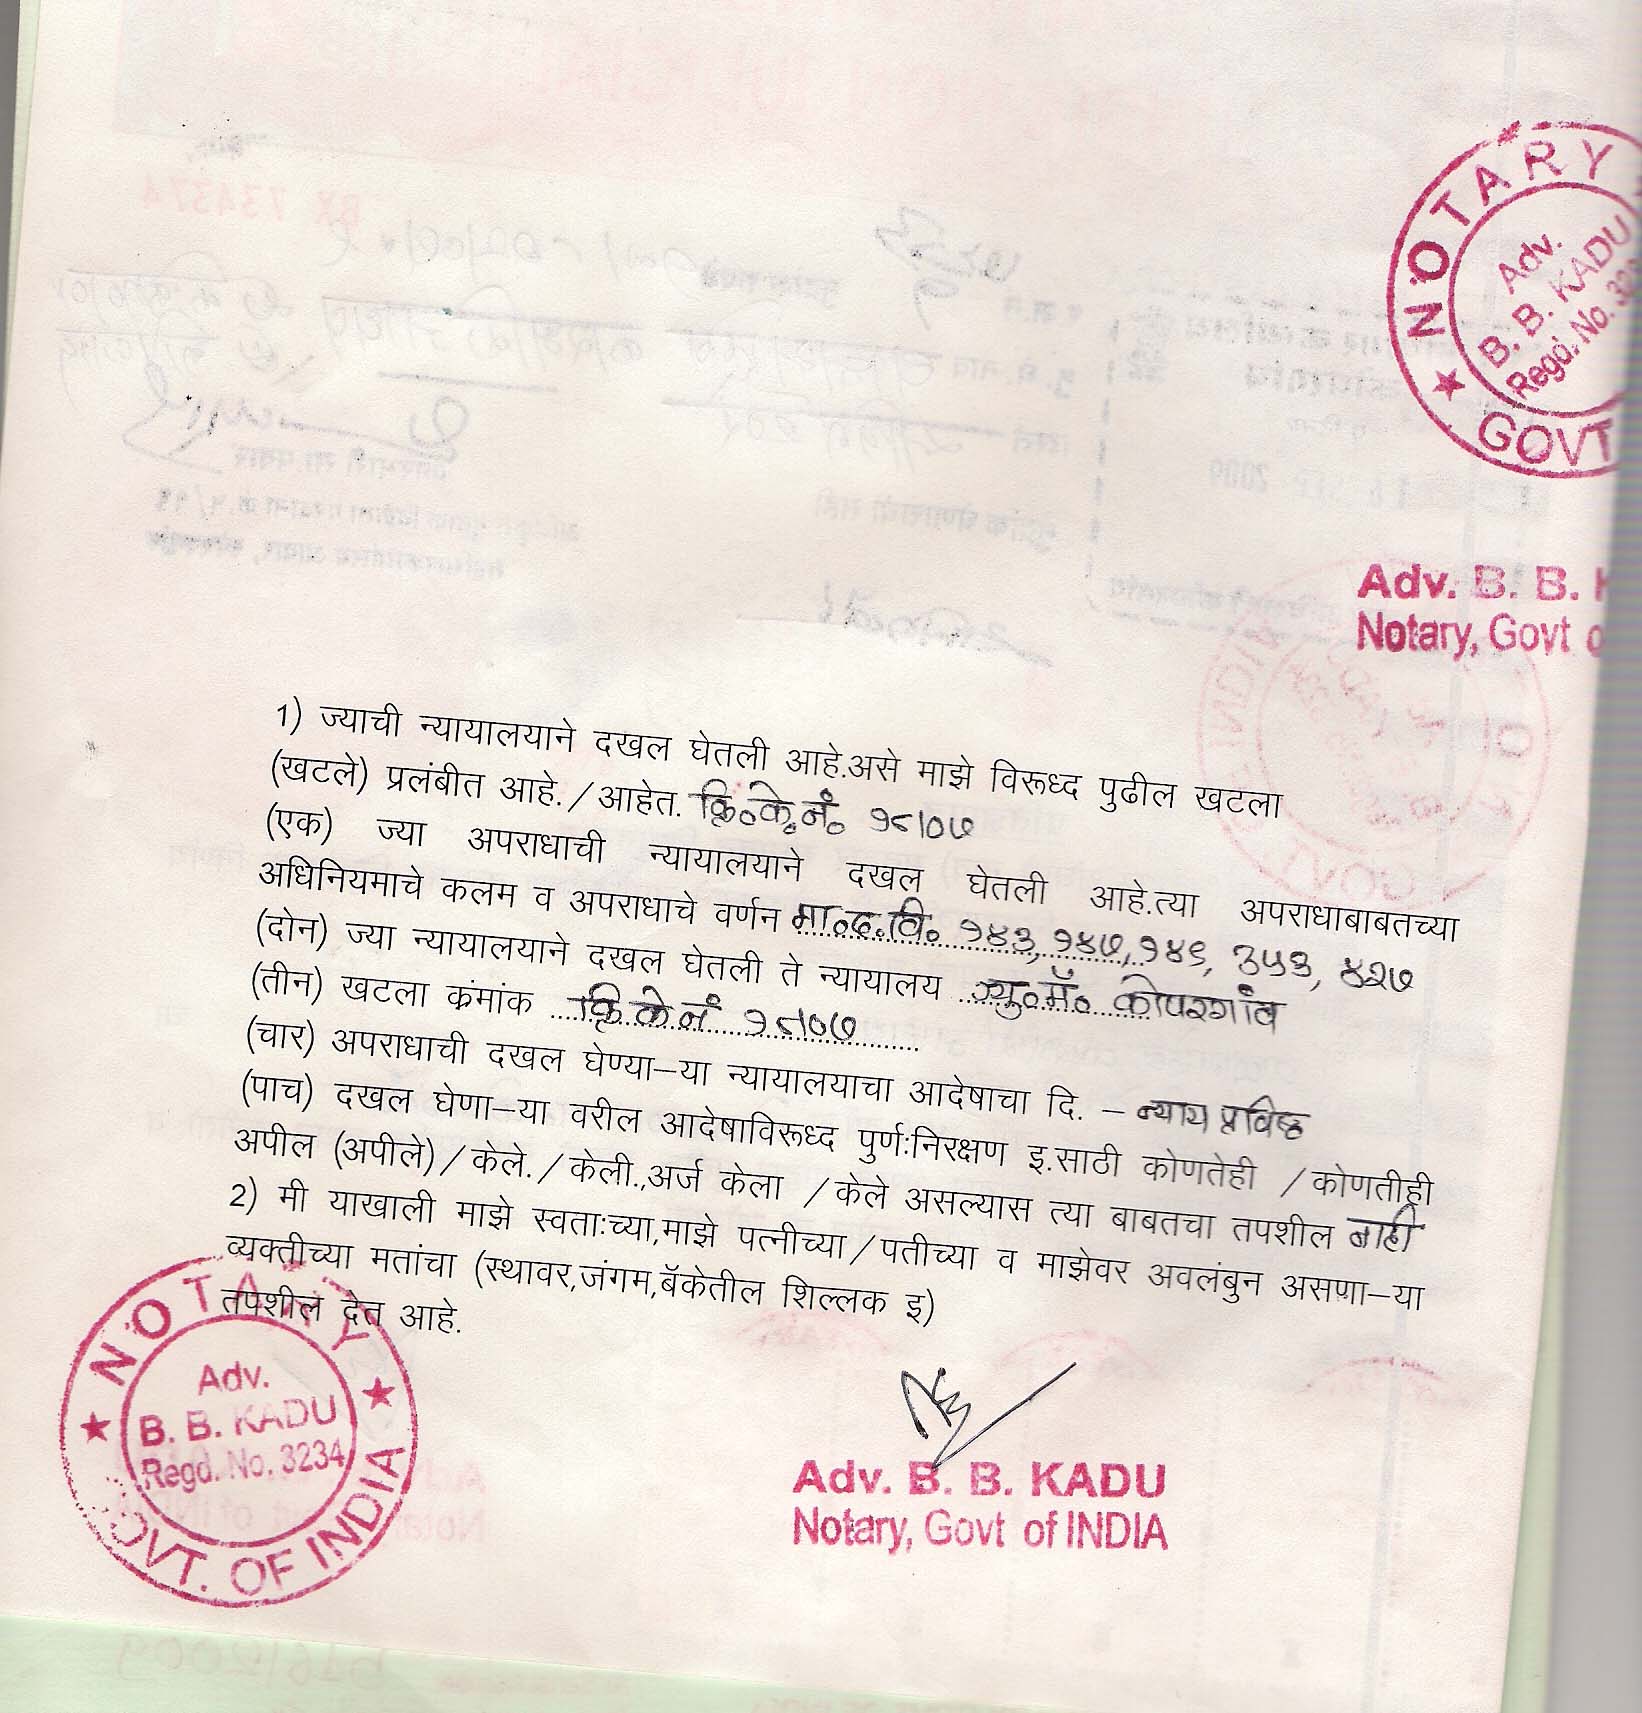 NOTARY
Adv.
B. B. KADU
Regd. No. 323
GOVT
Adv. B. B. K
Notary, Govt o
1) ज्याची न्यायालयाने दखल घेतली आहे.असे माझे विरूध्द पुढील खटला
(खटले) प्रलंबीत आहे./आहेत. क्रि०के०नं० १८/०७
(एक) ज्या अपराधाची न्यायालयाने दखल घेतली आहे.त्या अपराधाबाबतच्या
अधिनियमाचे कलम व अपराधाचे वर्णन भा०द.वि० १४३, १४७, १४९, ३५३, ४२७
(दोन) ज्या न्यायालयाने दखल घेतली ते न्यायालय ज्यु०मॅ० कोपरगांव
(तीन) खटला क्रंमांक क्रि के नं १८/०७
(चार) अपराधाची दखल घेण्या–या न्यायालयाचा आदेषाचा दि. – न्याय प्रविष्ठ
(पाच) दखल घेणा–या वरील आदेषाविरूध्द पुर्ण:निरक्षण इ.साठी कोणतेही /कोणतीही
अपील (अपीले)/केले./केली.,अर्ज केला /केले असल्यास त्या बाबतचा तपशील नाही
2) मी याखाली माझे स्वता:च्या,माझे पत्नीच्या/पतीच्या व माझेवर अवलंबुन असणा–या
व्यक्तीच्या मतांचा (स्थावर,जंगम,बॅकेतील शिल्लक इ)
तपशील देत आहे.
NOTARY
Adv.
B. B. KADU
Regd. No. 3234
GOVT. OF INDIA
Adv. B. B. KADU
Notary, Govt of INDIA